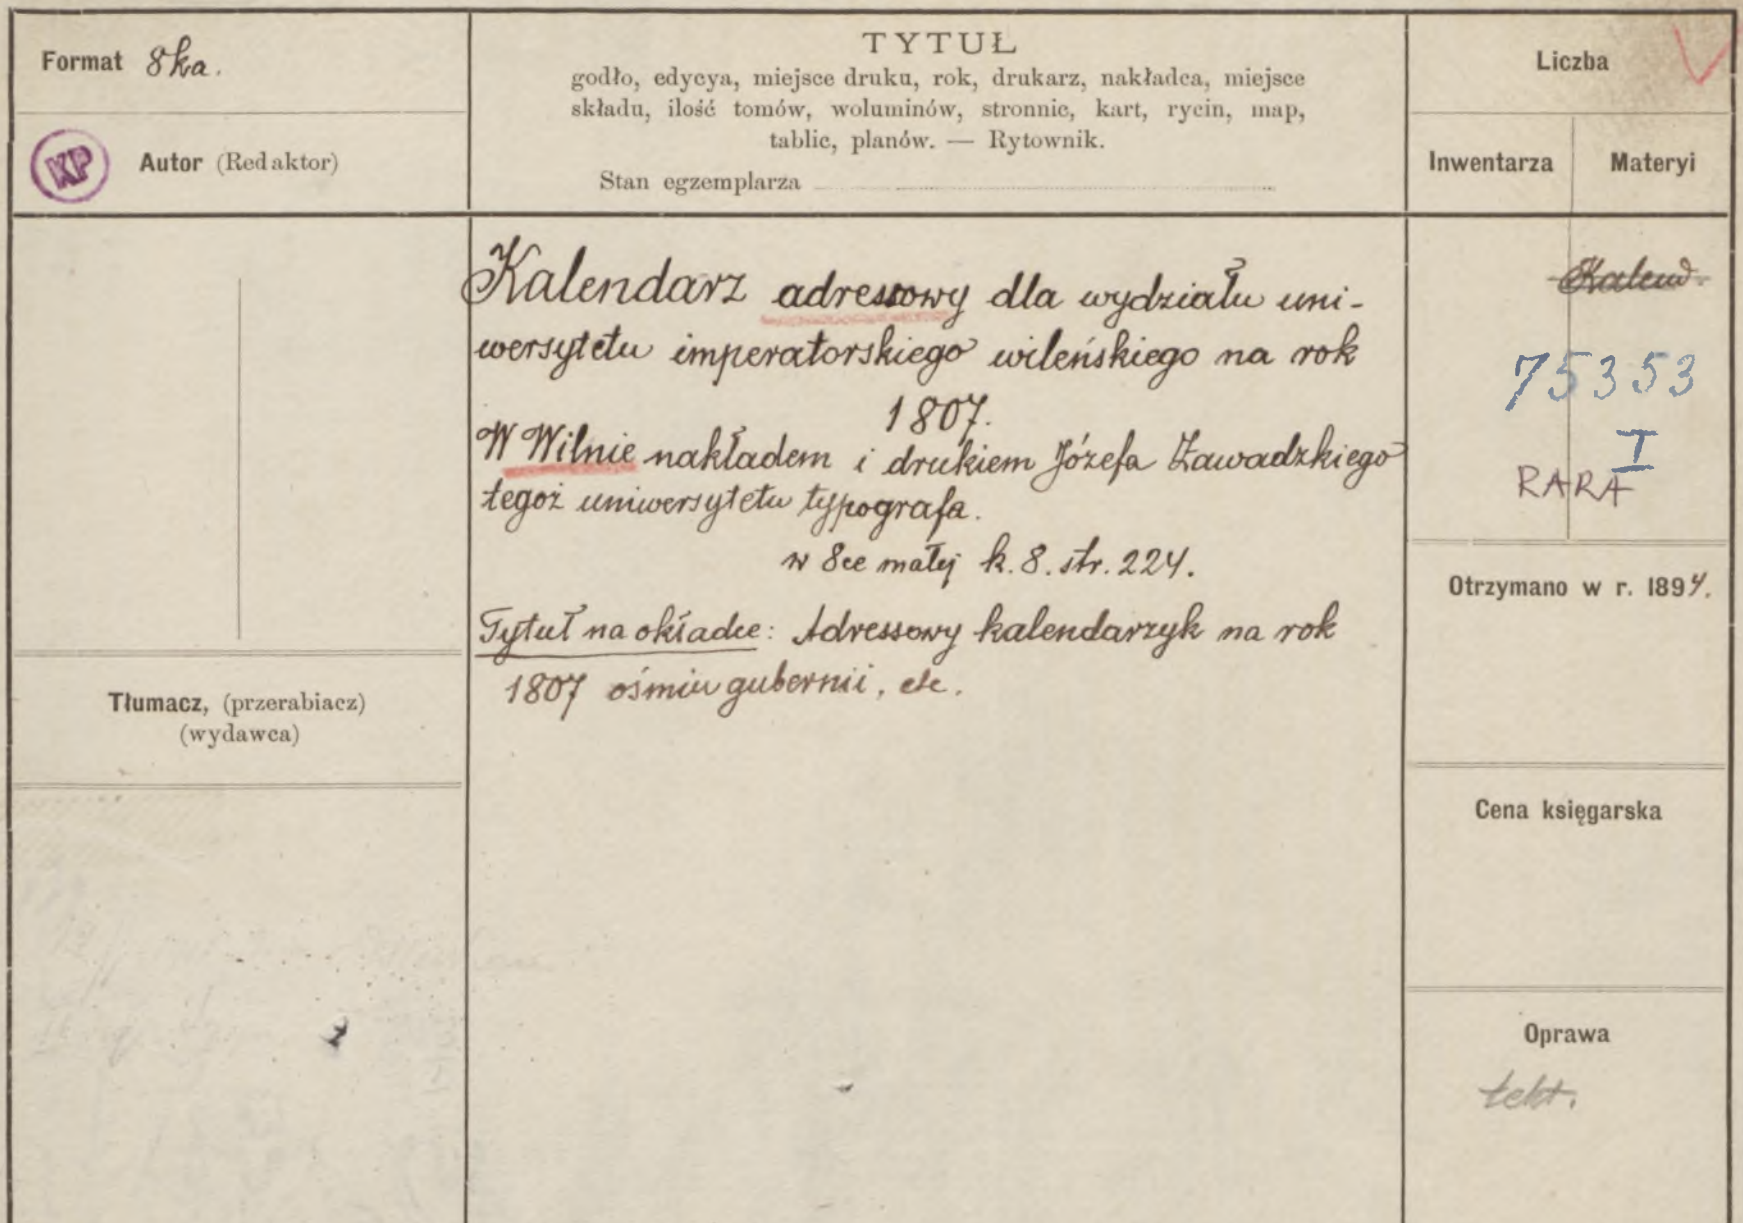 Format 8ka.
KP
Autor (Redaktor)
TYTUŁ
godło, edycya, miejsce druku, rok, drukarz, nakładca, miejsce
składu, ilość tomów, woluminów, stronnic, kart, rycin, map,
tablic, planów. — Rytownik.
Stan egzemplarza
Liczba
Inwentarza Materyi
Kalendarz adressowy dla wydziału uni-
wersytetu imperatorskiego wileńskiego na rok
1807.
W Wilnie nakładem i drukiem Józefa Zawadzkiego
tegoż uniwersytetu typografa.
w 8ce małej k. 8. str. 224.
Tytuł na okładce: Adressowy kalendarzyk na rok
1807 ośmiu gubernii, etc.
Kalend.
75353
I
RARA
Otrzymano w r. 1894.
Tłumacz, (przerabiacz)
(wydawca)
Cena księgarska
Oprawa
tekt.